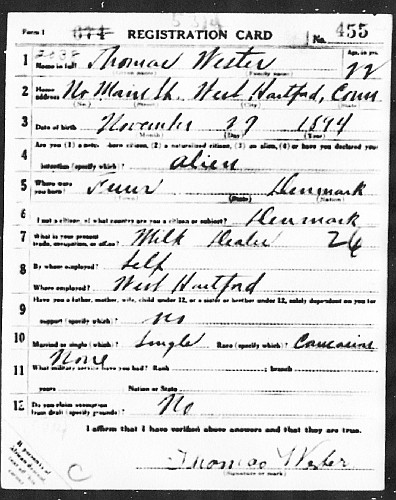 Form 1 REGISTRATION CARD No. 455
1 Name in full Thomas Wester Age, in yrs. 22
(Given name) (Family name)
2 Home address No Main St. West Hartford, Conn
(No.) (Street) (City) (State)
3 Date of birth November 29 1894
(Month) (Day) (Year)
4 Are you (1) a natural-born citizen, (2) a naturalized citizen, (3) an alien, (4) or have you declared your
intention (specify which)? alien
5 Where were you born? Denmark
(Town) (State) (Nation)
6 If not a citizen, of what country are you a citizen or subject? Denmark
7 What is your present trade, occupation, or office? Milk Dealer 26
8 By whom employed? Self
Where employed? West Hartford
9 Have you a father, mother, wife, child under 12, or a sister or brother under 12, solely dependent on you for
support (specify which)? no
10 Married or single (which)? Single Race (specify which)? Caucasian
11 What military service have you had? Rank None branch
years Nation or State
12 Do you claim exemption from draft (specify grounds)? No
I affirm that I have verified above answers and that they are true.
Thomas Wester
(Signature or mark)
C